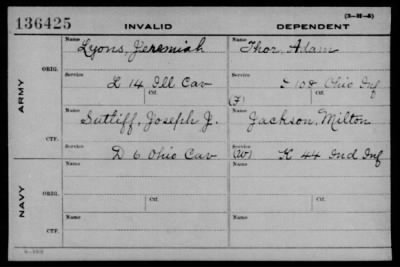 136425 INVALID DEPENDENT (3-2I-5)
ARMY
ORIG.
Name Lyons, Jeremiah Name Thor, Adam
Service L 14 Ill Cav Service I 108 Ohio Inf
Ctf. (F) Ctf.
CTF.
Name Sutliff, Joseph J. Name Jackson, Milton
Service D 6 Ohio Cav Service (W) K 44 Ind Inf
NAVY
ORIG.
Name Name
Ctf. Ctf.
CTF.
Name Name